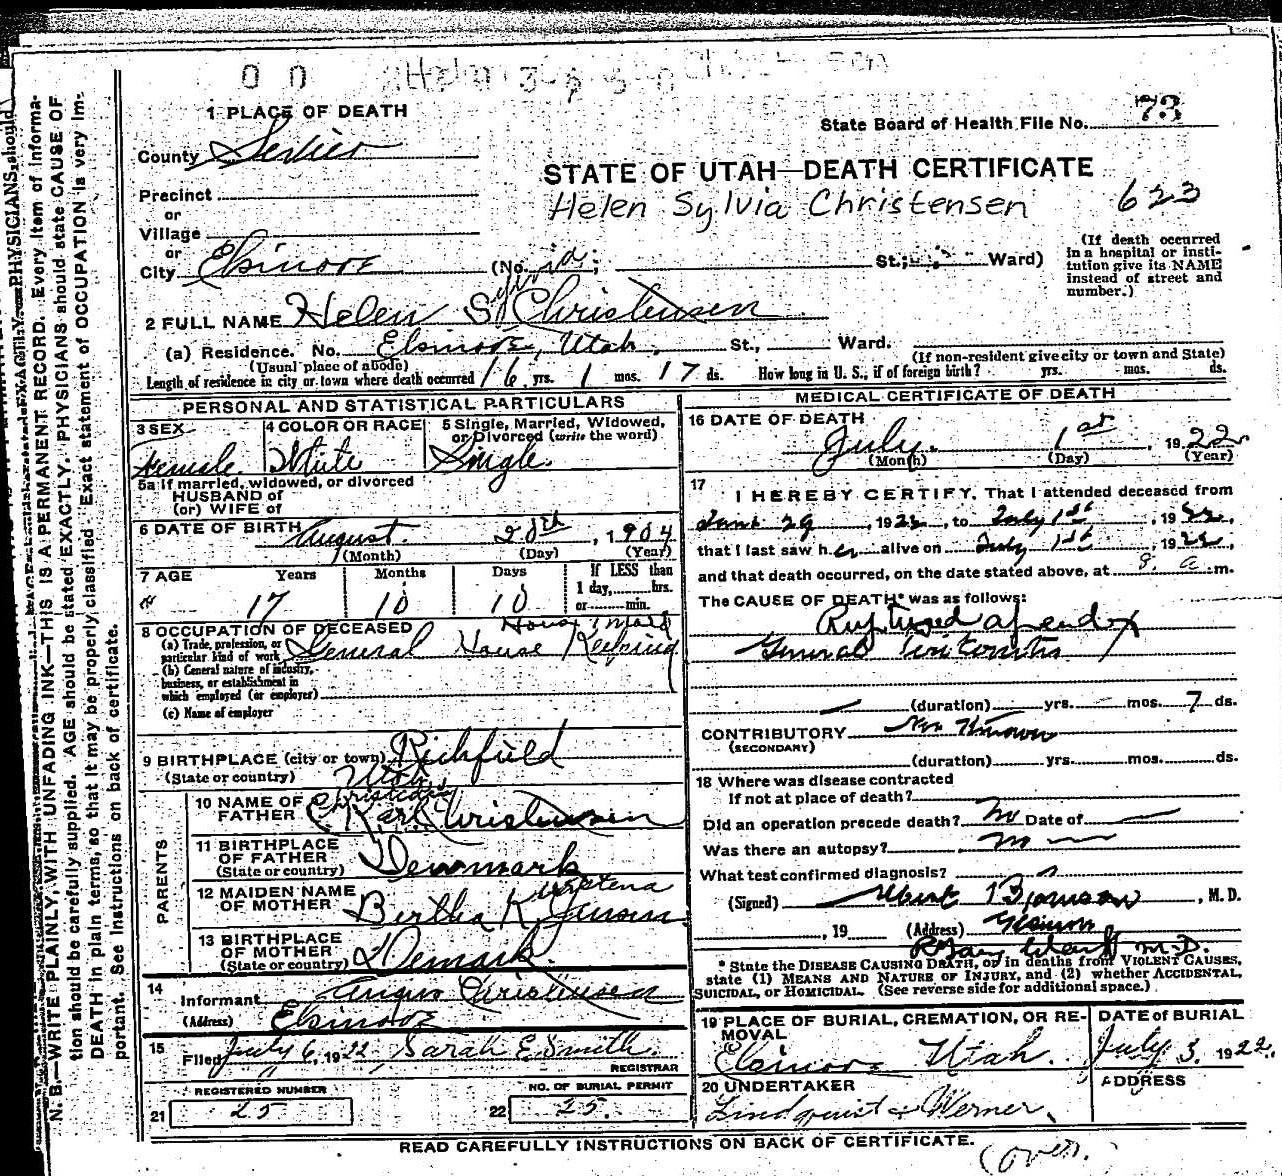 0 0
1 PLACE OF DEATH
State Board of Health File No. 73
County Sevier
STATE OF UTAH—DEATH CERTIFICATE
Precinct
Helen Sylvia Christensen 623
or
Village
or
City Elsinore (No. ; St.; Ward)
(If death occurred
in a hospital or insti-
tution give its NAME
instead of street and
number.)
2 FULL NAME Helen Sylvia Christensen
(a) Residence. No. Elsinore, Utah. St., Ward.
(Usual place of abode) (If non-resident give city or town and State)
Length of residence in city or town where death occurred 16 yrs. 1 mos. 17 ds. How long in U. S., if of foreign birth? yrs. mos. ds.
PERSONAL AND STATISTICAL PARTICULARS
3 SEX
Female.
4 COLOR OR RACE
White
5 Single, Married, Widowed,
or Divorced (write the word)
Single.
5a If married, widowed, or divorced
HUSBAND of
(or) WIFE of
6 DATE OF BIRTH August. 20th, 1904
(Month) (Day) (Year)
7 AGE Years Months Days If LESS than
1 day, hrs.
or min.
17 10 10
8 OCCUPATION OF DECEASED
(a) Trade, profession, or
particular kind of work General House Keeping
(b) General nature of industry,
business, or establishment in
which employed (or employer)
(c) Name of employer
9 BIRTHPLACE (city or town) Richfield
(State or country) Utah
PARENTS
10 NAME OF
FATHER Karl Christensen
11 BIRTHPLACE
OF FATHER
(State or country) Denmark
12 MAIDEN NAME
OF MOTHER Bertha K Jensen
13 BIRTHPLACE
OF MOTHER
(State or country) Demark.
14
Informant Christensen
(Address) Elsinore
15
Filed July 6, 1922 Sarah E Smith.
REGISTRAR
REGISTERED NUMBER
21 25
NO. OF BURIAL PERMIT
22 25.
MEDICAL CERTIFICATE OF DEATH
16 DATE OF DEATH
July. 1st, 1922
(Month) (Day) (Year)
17
I HEREBY CERTIFY, That I attended deceased from
June 29, 1922, to July 1st, 1922,
that I last saw her alive on July 1st, 1922,
and that death occurred, on the date stated above, at 8. a. m.
The CAUSE OF DEATH* was as follows:
Ruptured apendix
General
(duration) yrs. mos. 7 ds.
CONTRIBUTORY
(SECONDARY)
(duration) yrs. mos. ds.
18 Where was disease contracted
If not at place of death?
Did an operation precede death? no Date of
Was there an autopsy? no
What test confirmed diagnosis?
(Signed) , M. D.
, 19 (Address)
M.D.
* State the DISEASE CAUSING DEATH, or in deaths from VIOLENT CAUSES,
state (1) MEANS AND NATURE OF INJURY, and (2) whether ACCIDENTAL,
SUICIDAL, or HOMICIDAL. (See reverse side for additional space.)
19 PLACE OF BURIAL, CREMATION, OR RE-
MOVAL
Elsinore Utah.
DATE of BURIAL
July 3, 1922.
20 UNDERTAKER
Lindquist & Werner.
ADDRESS
READ CAREFULLY INSTRUCTIONS ON BACK OF CERTIFICATE.
(over.)
N. B.—WRITE PLAINLY, WITH UNFADING INK—THIS IS A PERMANENT RECORD. Every item of informa-
tion should be carefully supplied. AGE should be stated EXACTLY. PHYSICIANS should state CAUSE OF
DEATH in plain terms, so that it may be properly classified. Exact statement of OCCUPATION is very im-
portant. See instructions on back of certificate.